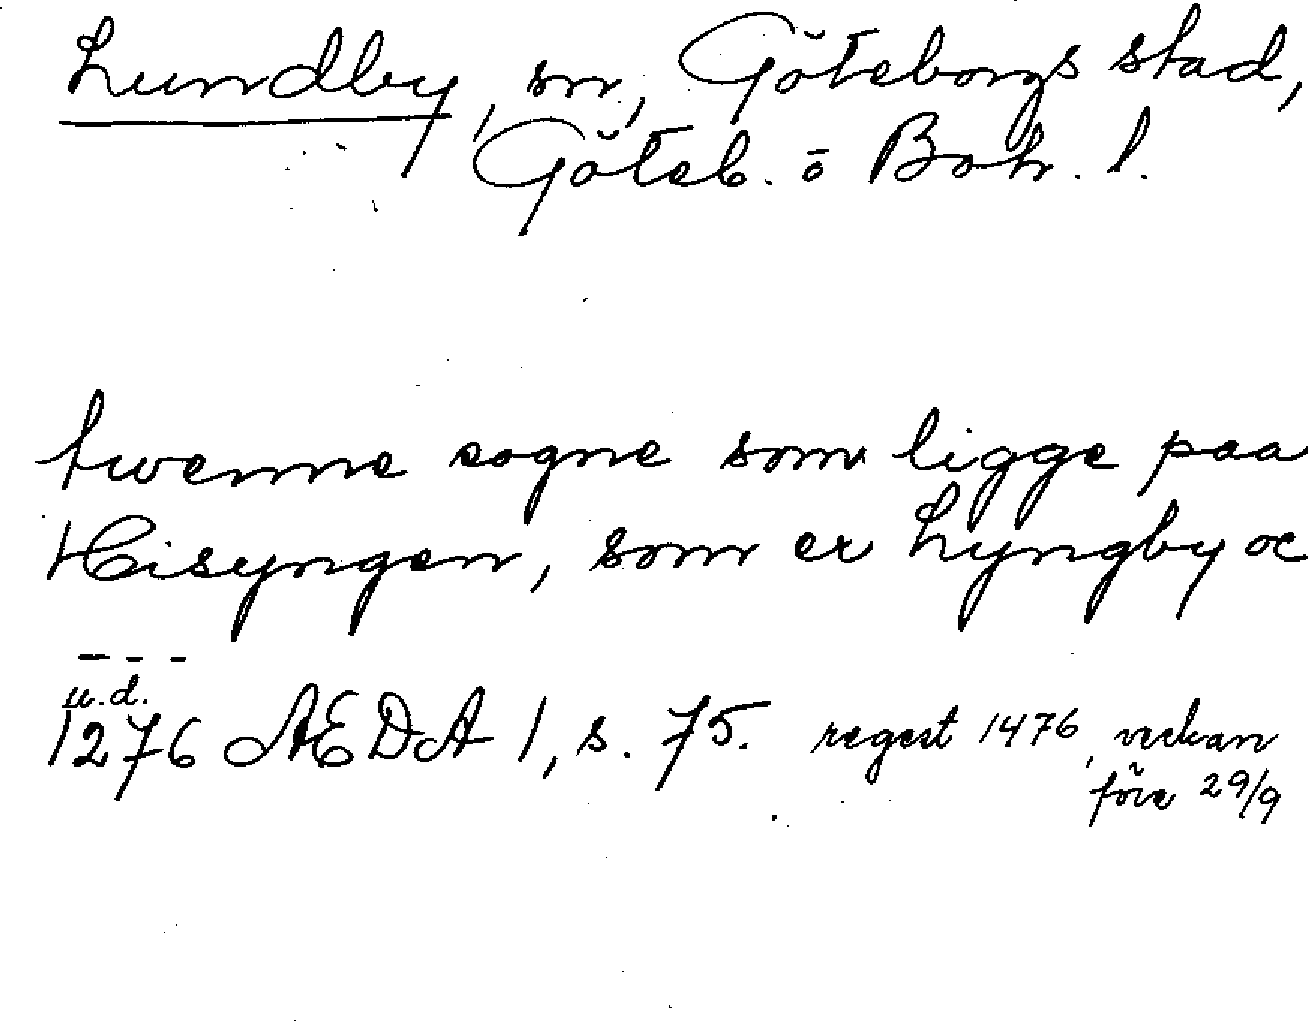 Lundby, sn, Göteborgs stad,
Göteb. o Boh. l.
twenne sogne som ligge paa
Hisyngen, som er Lyngby oc
- - -
u.d.
1276 AEDA 1, s. 75. regest 1476, veckan
före 29/9